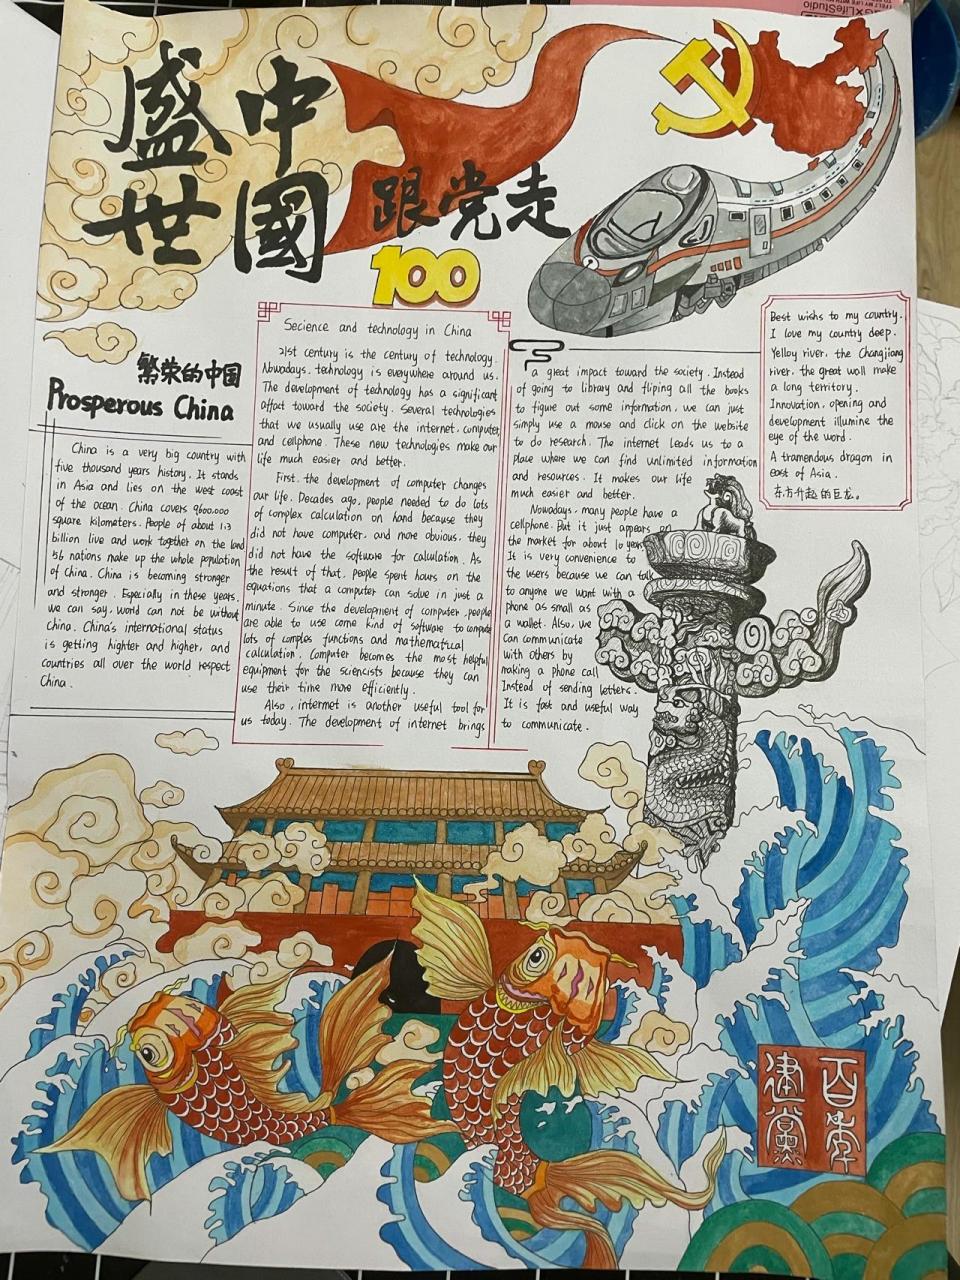 盛世
中國
跟党走
100
繁荣的中国
Prosperous China
China is a very big country with
five thousand years history. It stands
in Asia and lies on the west coast
of the ocean. China covers 9600,000
square kilometers. People of about 1.3
billion live and work together on the land
56 nations make up the whole population
of China. China is becoming stronger
and stronger. Especially in these years,
we can say, world can not be without
China. China's international status
is getting highter and higher, and
countries all over the world respect
China.
Secience and technology in China
21st century is the century of technology.
Nowadays. technology is everywhere around us.
The development of technology has a significant
affact toward the society. Several technologies
that we usually use are the internet, computer,
and cellphone. These new technologies make our
life much easier and better.
First, the development of computer changes
our life. Decades ago, people needed to do lots
of complex calculation on hand because they
did not have computer, and more obvious, they
did not have the software for calculation. As
the result of that, people spent hours on the
equations that a computer can solve in just a
minute. Since the development of computer, people
are able to use some kind of software to compute
lots of comples functions and mathematical
calculation. Computer becomes the most helpful
equipment for the sciencists because they can
use their time more efficiently.
Also, internet is another useful tool for
us today. The development of internet brings
a great impact toward the society. Instead
of going to library and fliping all the books
to figure out some information, we can just
simply use a mouse and click on the website
to do research. The internet leads us to a
place where we can find unlimited information
and resources. It makes our life
much easier and better.
Nowadays, many people have a
cellphone. But it just appears on
the market for about 10 years
It is very convenience to
the users because we can talk
to anyone we want with a
phone as small as
a wallet. Also, we
can communicate
with others by
making a phone call
Instead of sending letters.
It is fast and useful way
to communicate.
Best wishes to my country.
I love my country deep.
Yelloy river, the Changjiang
river, the great wall make
a long territory.
Innovation, opening and
development illumine the
eye of the word.
A tramendous dragon in
east of Asia.
东方升起的巨龙。
百年
建党